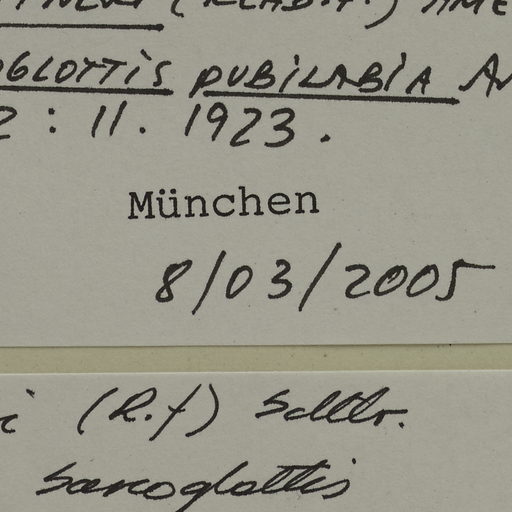 (RCHB.F.) AME
OGLOTTIS PUBILABIA AM
2 : 11. 1923.
München
8/03/2005
i (R.f) Schltr.
Sarcoglottis